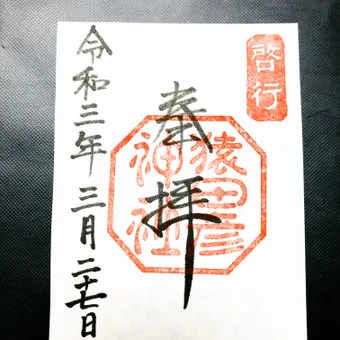 啓行
奉拝
猿田彦
神社
令和三年 三月二十七日